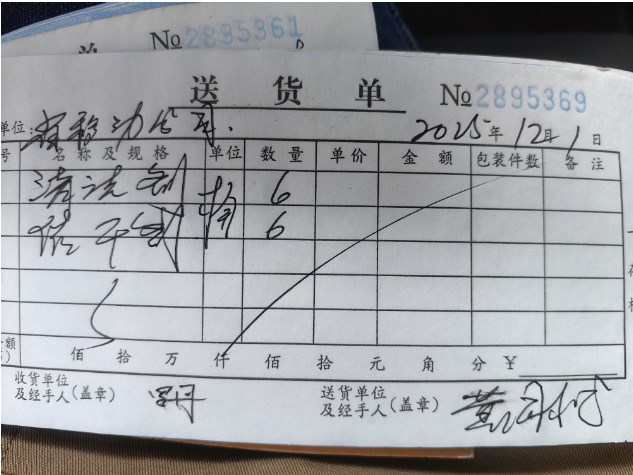 单 № 2895361
送货单 № 2895369
单位: 移动公司. 2025年12月1日
号 名称及规格 单位 数量 单价 金额 包装件数 备注
清洗剂 桶 6
催干剂 6
佰 拾 万 仟 佰 拾 元 角 分 ¥
收货单位 送货单位
及经手人(盖章) 及经手人(盖章) 黄